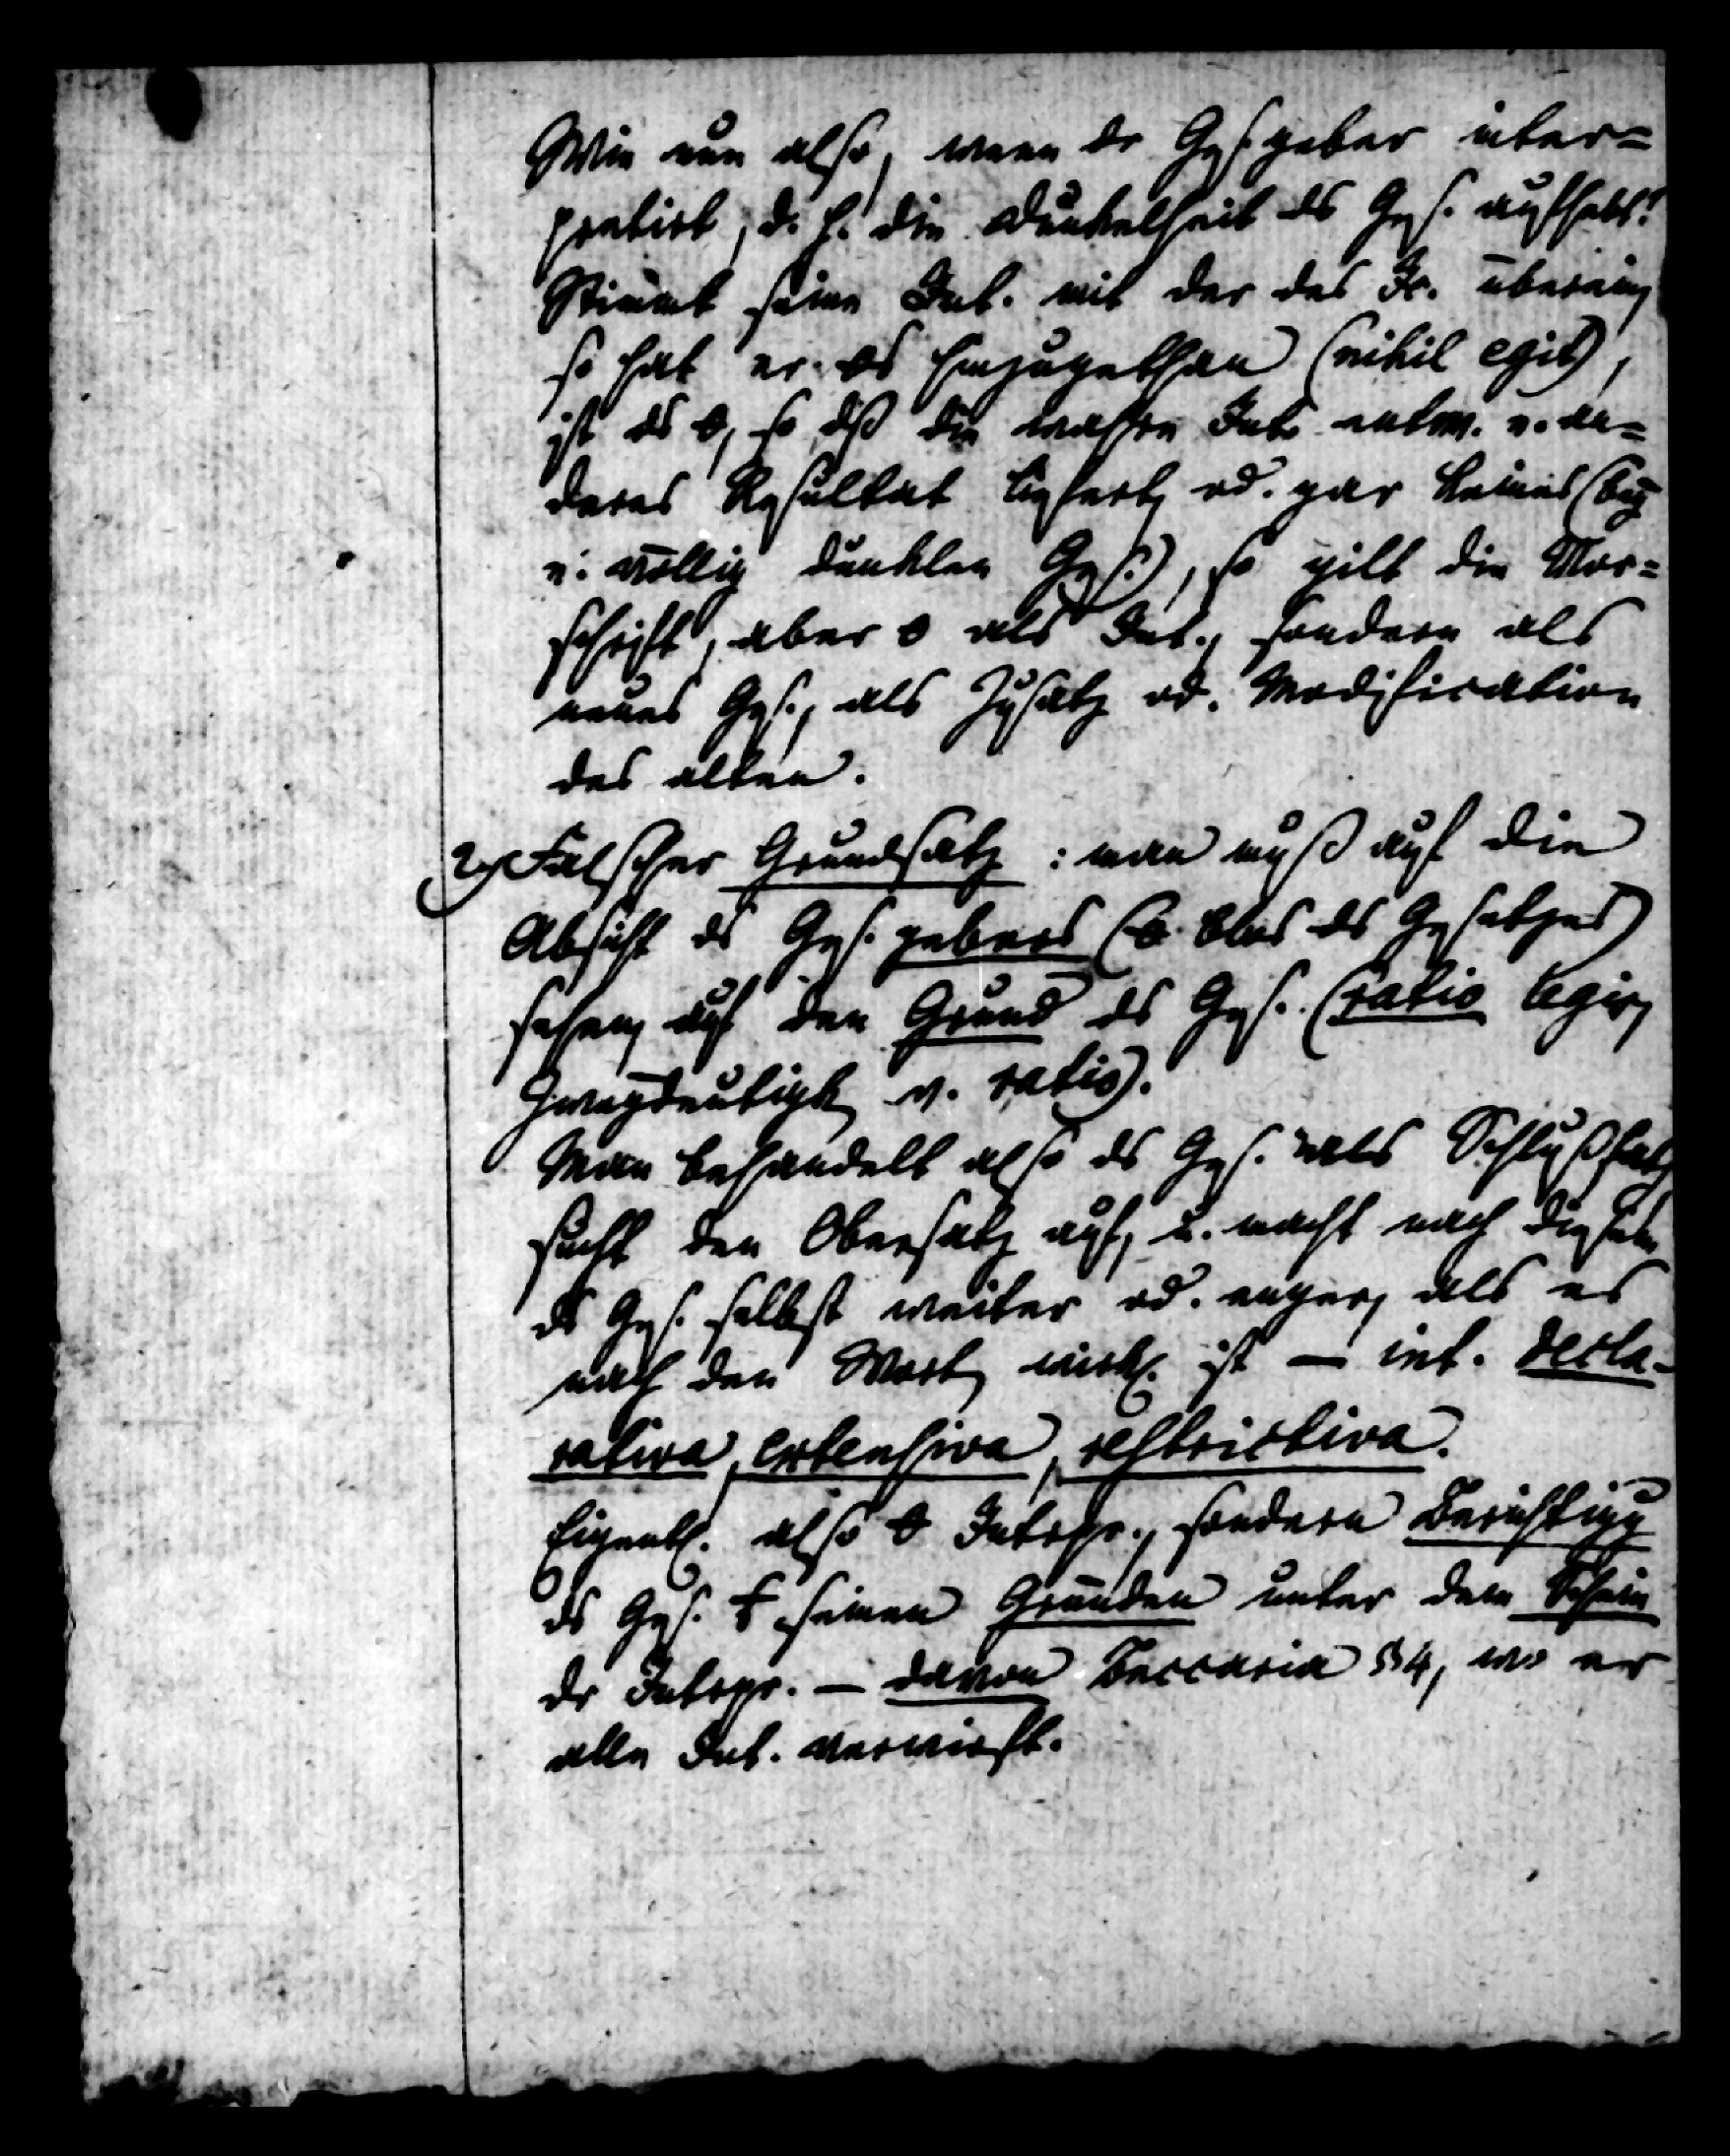 Wie nun also, wenn dr Gesgeber inter=
pretirt, d. h. die Dunkelheit ds Ges. aufhebt?
Stimmt seine Int. mit der des Ic. überein,
so hat er ... hinzugethan (nihil egit),
ist ds 0, so dß die wahre Int. entw. e. an=
deres Resultat liefert, od. gar keines (bey
e. völlig dunklen Ges.), so gilt die Vor=
schrift, aber 0 als Int., sondern als
neues Ges., als Zusatz od. Modification
des alten.
2) Falscher Grundsatz: man muß auf die
Absicht ds Ges.gebers (0 blos ds Gesetzes)
sehen, auf den Grund ds Ges. (ratio legis,
Zweydeutigk v. ratio).
Man behandelt also ds Ges. als Schlußsatz,
sucht den Obersatz auf, u. macht nach diesem
ds Ges. selbst weiter od. enger, als es
nach den Wort wirkl. ist — int. decla-
rativa, extensiva, restrictiva.
Eigentl. also 0 Intrpr., sondern Berichtigg
ds Ges. seinen Gründen unter dem Schein
dr Intrpr. — davon Beccaria §4, wo er
alle Int. verwirft.